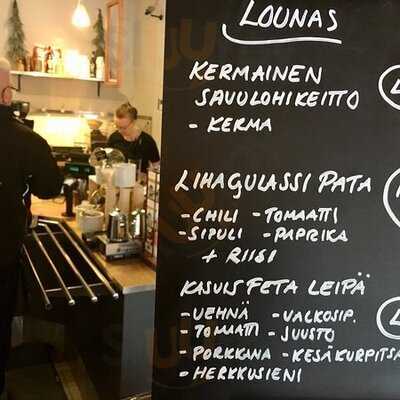 LOUNAS
KERMAINEN
SAVULOHIKEITTO
- KERMA
LIHAGULASSI PATA
- CHILI - TOMAATTI
- SIPULI - PAPRIKA
+ RIISI
KASVIS FETA LEIPÄ
- VEHNÄ - VALKOSIP.
- TOMAATTI - JUUSTO
- PORKKANA - KESÄKURPITSA
- HERKKUSIENI